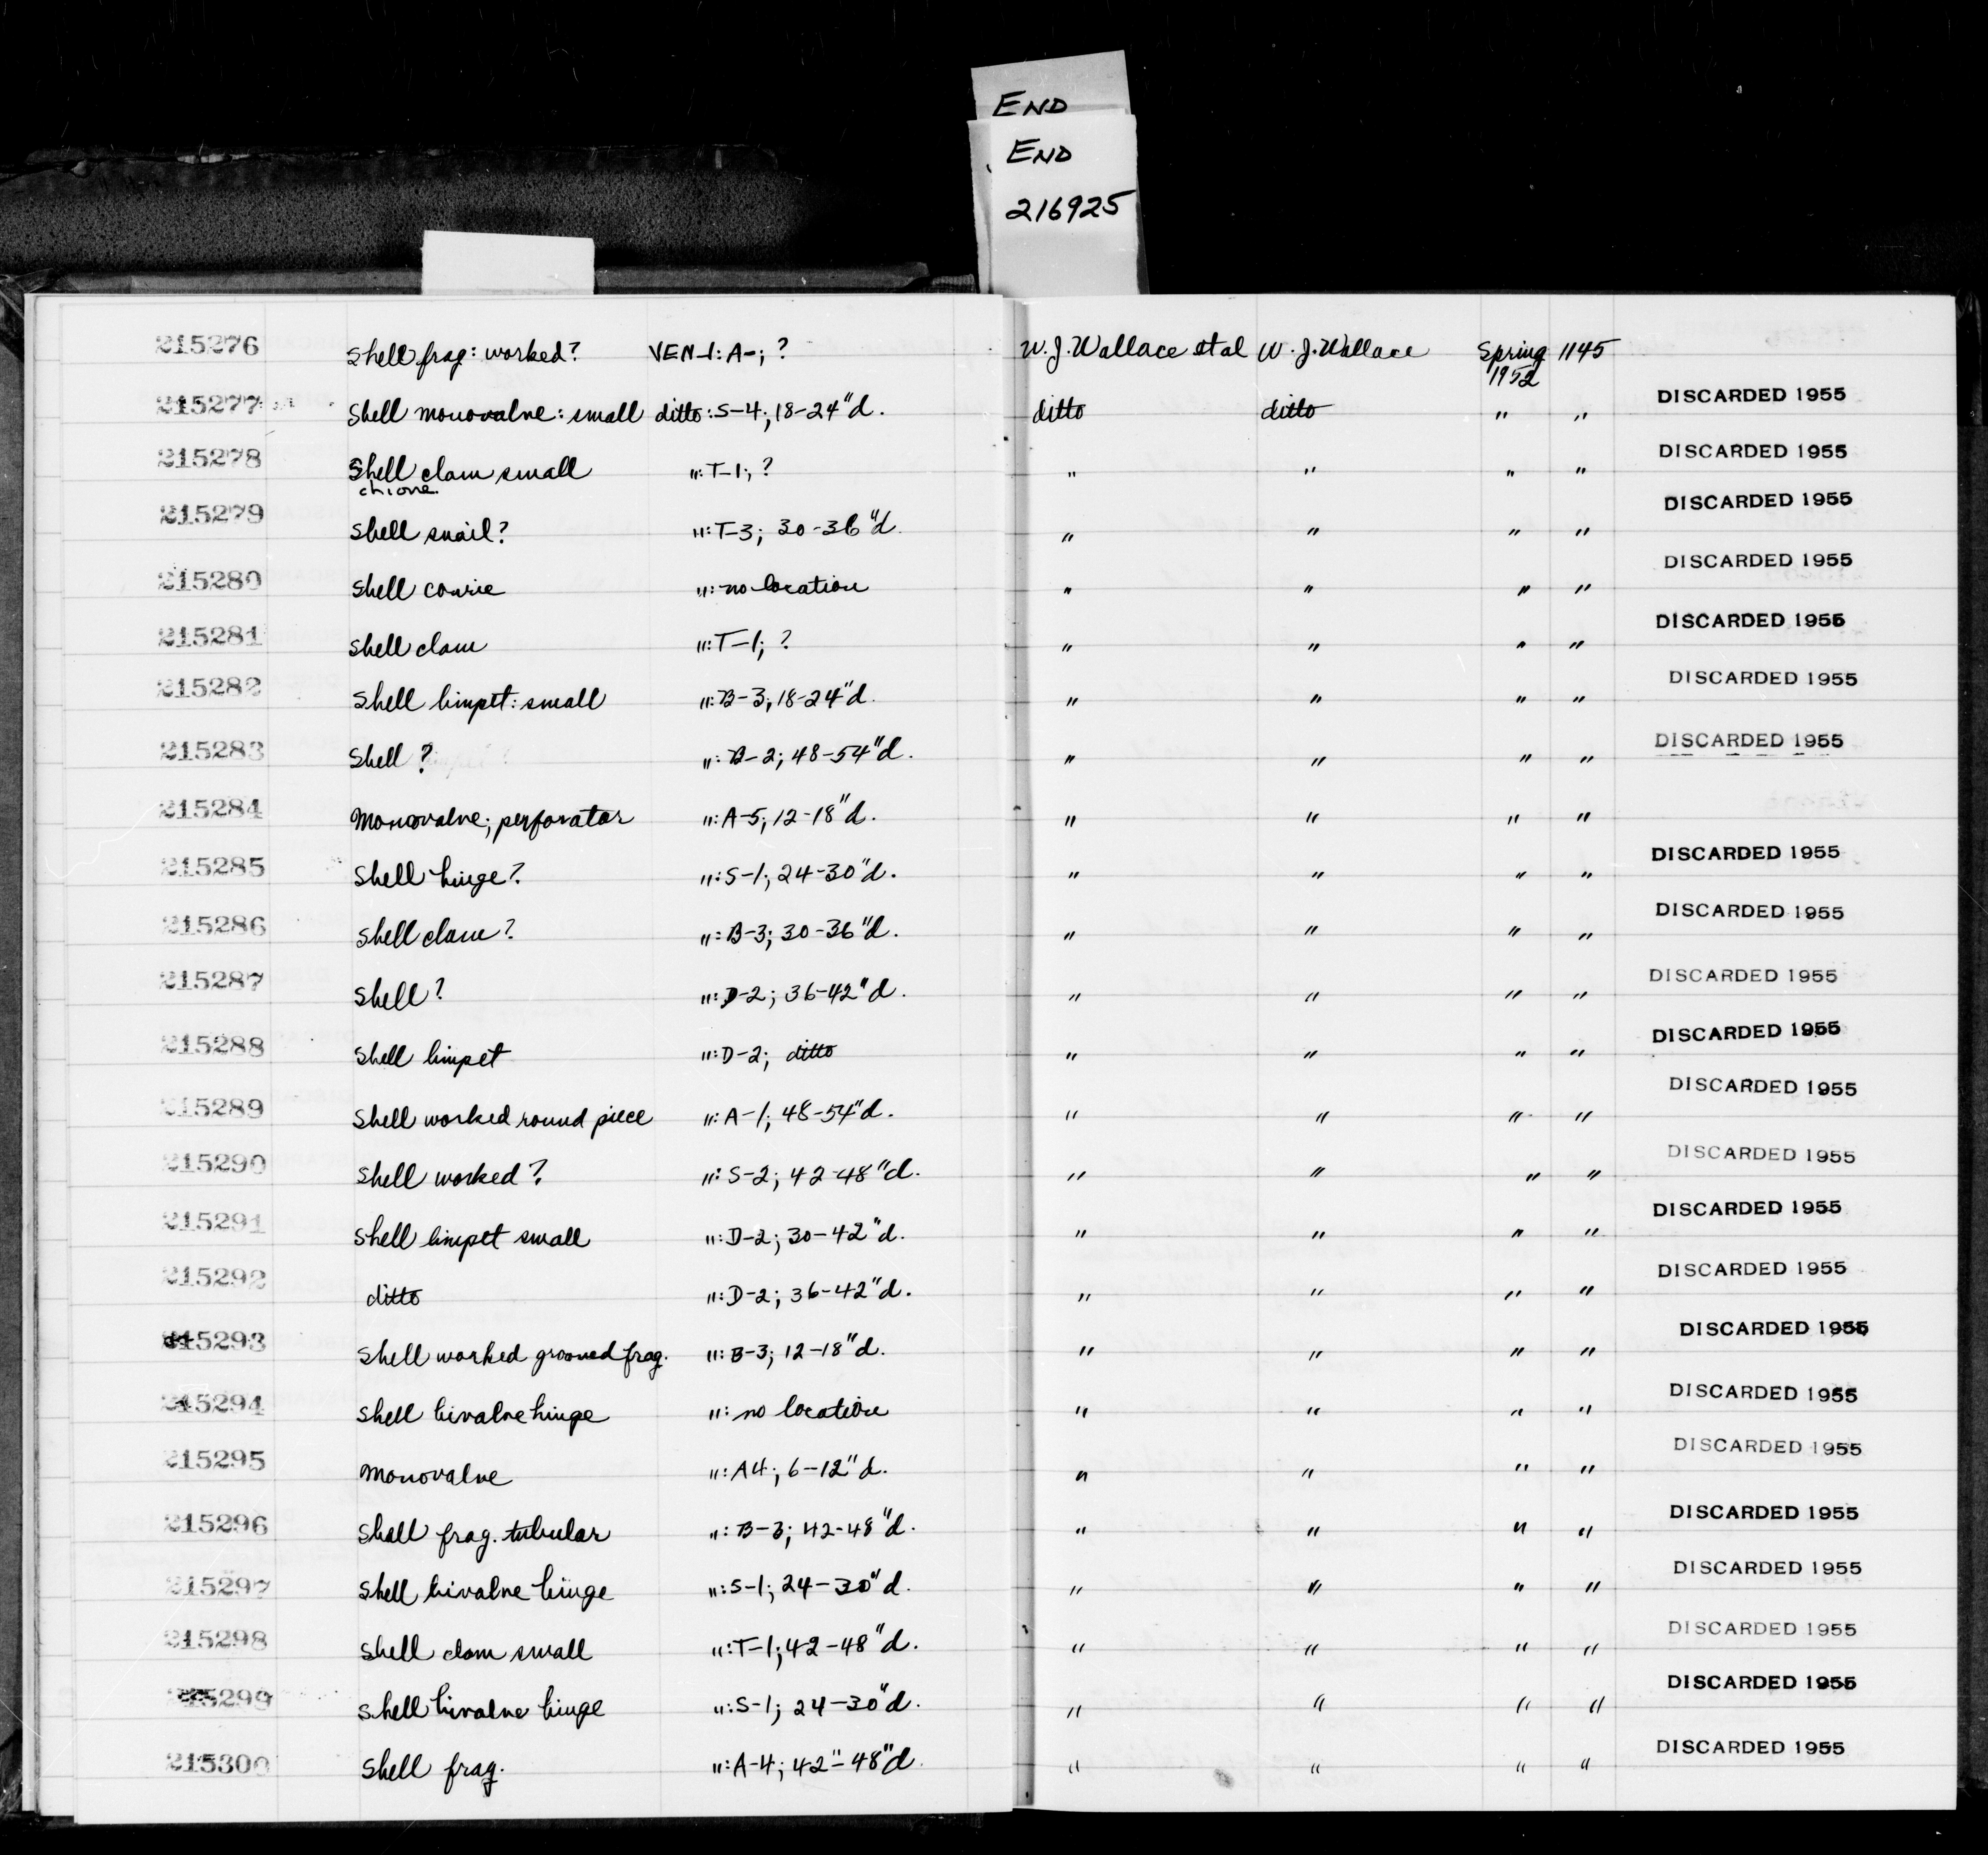 END
END
216925
215276 Shell frag: worked? VEN-1: A-; ? W. J. Wallace et al W. J. Wallace Spring 1952 1145
215277 Shell monovalve: small ditto: S-4; 18-24"d. ditto ditto " " DISCARDED 1955
215278 Shell clam small ": T-1; ? " " " " DISCARDED 1955
chione
215279 Shell snail? ": T-3; 30-36"d. " " " " DISCARDED 1955
215280 Shell cowrie ": no location " " " " DISCARDED 1955
215281 Shell clam ": T-1; ? " " " " DISCARDED 1955
215282 Shell limpet: small ": B-3; 18-24"d. " " " " DISCARDED 1955
215283 Shell ? ": B-2; 48-54"d. " " " " DISCARDED 1955
215284 Monovalve; perforator ": A-5; 12-18"d. " " " "
215285 Shell hinge? ": S-1; 24-30"d. " " " " DISCARDED 1955
215286 Shell clam? ": B-3; 30-36"d. " " " " DISCARDED 1955
215287 Shell? ": D-2; 36-42"d. " " " " DISCARDED 1955
215288 Shell limpet ": D-2; ditto " " " " DISCARDED 1955
215289 Shell worked round piece ": A-1; 48-54"d. " " " " DISCARDED 1955
215290 Shell worked? ": S-2; 42-48"d. " " " " DISCARDED 1955
215291 Shell limpet small ": D-2; 30-42"d. " " " " DISCARDED 1955
215292 ditto ": D-2; 36-42"d. " " " " DISCARDED 1955
215293 Shell worked grooved frag. ": B-3; 12-18"d. " " " " DISCARDED 1955
215294 Shell bivalve hinge ": no location " " " " DISCARDED 1955
215295 Monovalve ": A4; 6-12"d. " " " " DISCARDED 1955
215296 Shall frag. tubular ": B-3; 42-48"d. " " " " DISCARDED 1955
215297 Shell bivalve hinge ": S-1; 24-30"d. " " " " DISCARDED 1955
215298 Shell clam small ": T-1; 42-48"d. " " " " DISCARDED 1955
215299 Shell bivalve hinge ": S-1; 24-30"d. " " " " DISCARDED 1955
215300 Shell frag. ": A-4; 42"-48"d. " " " " DISCARDED 1955